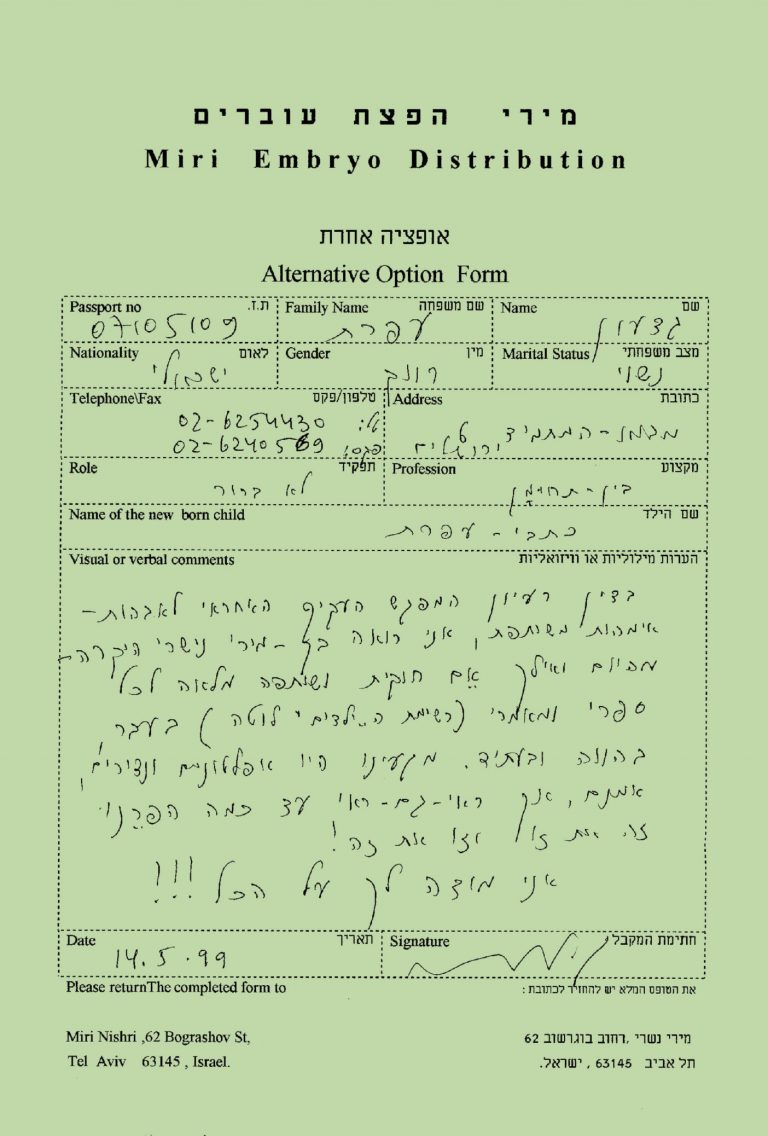 מירי הפצת עוברים
Miri Embryo Distribution
אופציה אחרת
Alternative Option Form
Passport no ת.ז. Family Name שם משפחה Name שם
07105109 עפרת גדעון
Nationality לאום Gender מין Marital Status מצב משפחתי
ישראלי נשוי
Telephone\Fax טלפון/פקס Address כתובת
טל: 02-6254430
פקס: 02-6240569 ירושלים
Role תפקיד Profession מקצוע
לא ברור בין-תחומי
Name of the new born child שם הילד
כתבי-עפרת
Visual or verbal comments הערות מילוליות או וויזואליות
רעיון המפגש העקיף האחראי לאבהות-
אימהות משותפת, אני רואה בך - מירי נישרי היקרה-
מהיום ואילך אֵם חוקית ושותפה מלאה לכל
ספרי ומאמרי (רשימת ה"ילדים" לוטה) בעבר,
בהווה ובעתיד. מגעינו היו אפלטוניים ונדירים,
אמנם, אך ראי-גם-ראי עד כמה הפרֵנו
זה את זו וזו את זה!
אני מודה לך על הכל!!!
Date תאריך Signature חתימת המקבל
14.5.99
Please returnThe completed form to את הטופס המלא יש להחזיר לכתובת:
Miri Nishri ,62 Bograshov St, מירי נשרי ,רחוב בוגרשוב 62
Tel Aviv 63145 , Israel. תל אביב 63145 , ישראל.